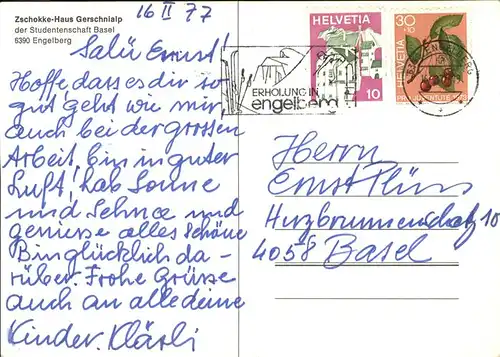 Zschokke-Haus Gerschnialp
der Studentenschaft Basel
6390 Engelberg
16 II 77
Salü Ernst!
Hoffe dass es dir so
gut geht wie mir
auch bei der grossen
Arbeit. bin in guter
Luft! hab Sonne
und Schnee und
geniesse alles Schöne
Bin glücklich da-
rüber. Frohe Grüsse
auch an alle deine
Kinder. Klärli
HELVETIA
10
30
+10
HELVETIA
PRO JUVENTUTE
ERHOLUNG IN
engelberg
Herrn
Ernst Plüss
Herzbrunnenschatz 10
4058 Basel